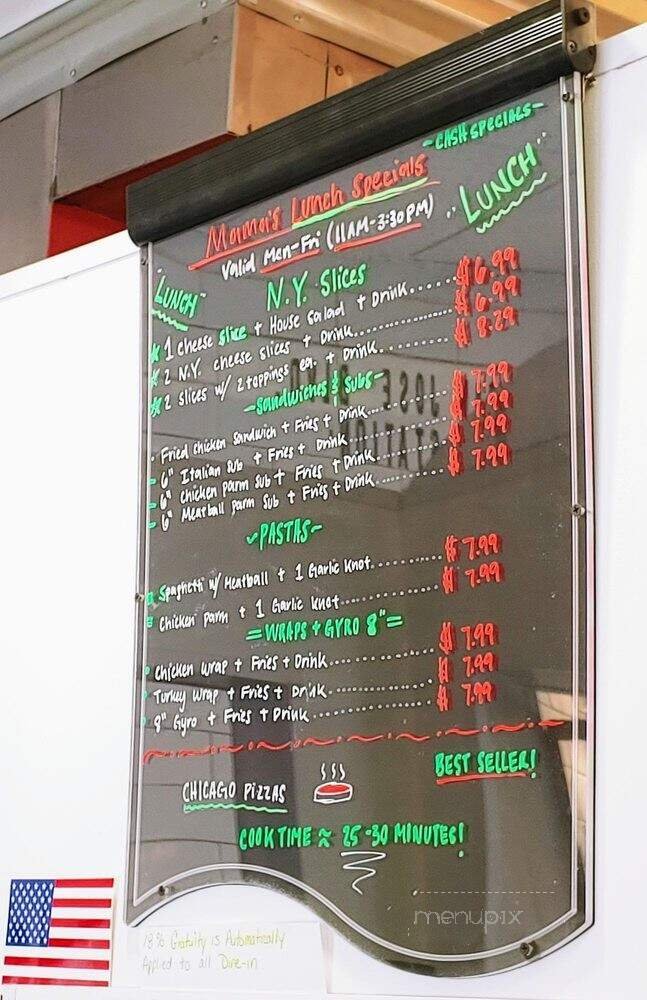 ~CASH SPECIALS~
Mama's Lunch Specials
Valid Mon-Fri (11AM-3:30PM)
"LUNCH"
"LUNCH"
N.Y. Slices
1 cheese slice + House salad + Drink...... $6.99
2 N.Y. cheese slices + Drink.................. $6.99
2 slices w/ 2 toppings ea. + Drink.......... $8.29
~Sandwiches & Subs~
Fried chicken Sandwich + Fries + Drink............ $7.99
6" Italian sub + Fries + Drink.................. $7.99
6" chicken parm sub + Fries + Drink............ $7.99
6" Meatball parm Sub + Fries + Drink............ $7.99
~PASTAS~
Spaghetti w/ Meatball + 1 Garlic Knot............ $7.99
Chicken parm + 1 Garlic Knot.................. $7.99
=WRAPS + GYRO 8"=
Chicken wrap + Fries + Drink.................. $7.99
Turkey wrap + Fries + Drink.................. $7.99
8" Gyro + Fries + Drink.................. $7.99
BEST SELLER!
CHICAGO PIZZAS
COOK TIME ≈ 25-30 MINUTES!
menupix
18% Gratuity is Automatically
Applied to all Dine-in